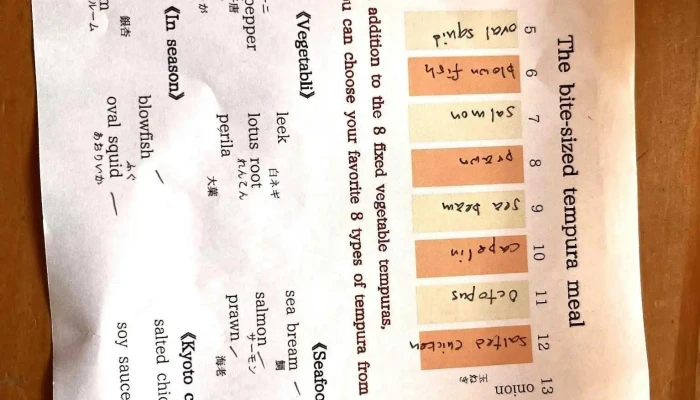 The bite-sized tempura meal
5 oval squid
6 blown fish
7 salmon
8 prawn
9 sea beam
10 capelin
11 octopus
12 salted chicken
13 onion 玉ねぎ
addition to the 8 fixed vegetable tempuras,
can choose your favorite 8 types of tempura from
《Vegetabli》
pepper
leek 白ネギ
lotus root れんこん
perila 大葉
《In season》
銀杏
blowfish ふぐ
oval squid あおりいか
sea bream 鯛
salmon サーモン
prawn 海老
salted
soy sauce